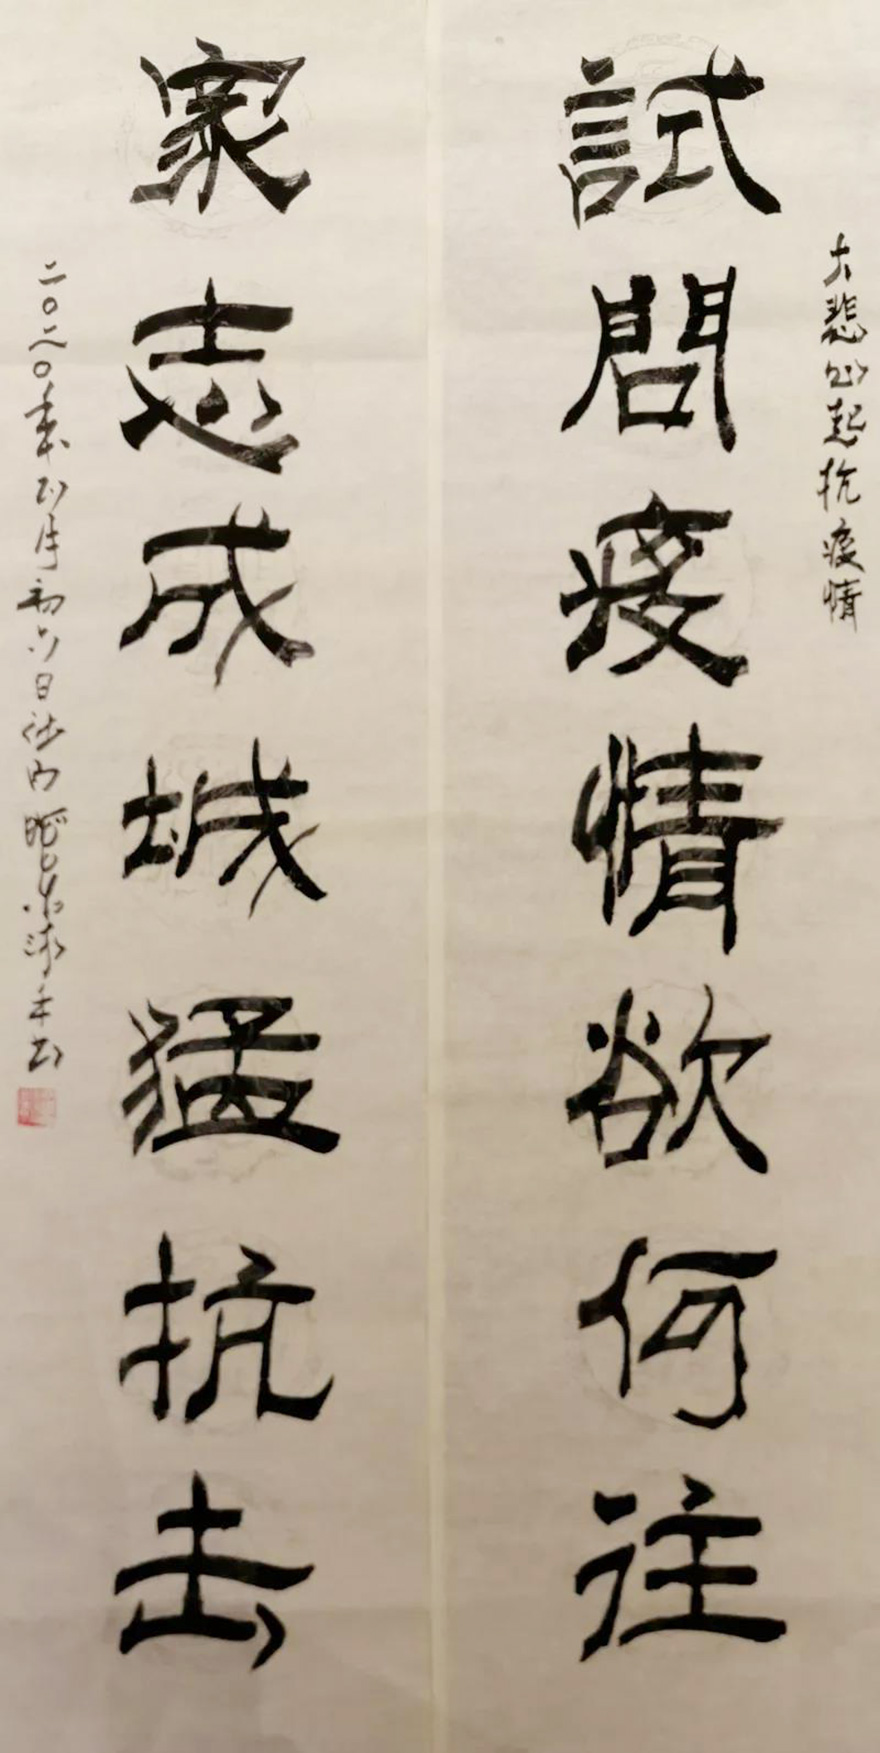 大悲心起抗疫情
試問疫情欲何往
家志成城猛抗击
二〇二〇年正月初六日